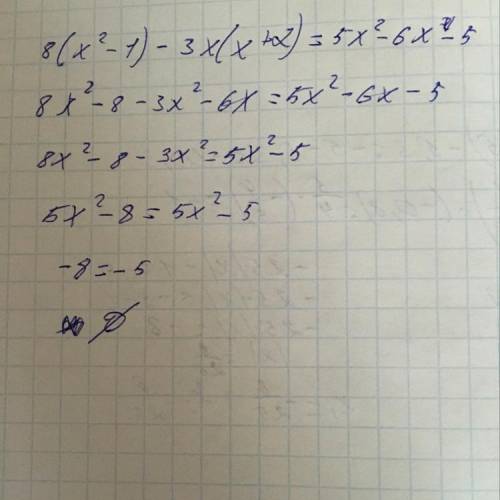 8(x²-1)-3x(x+2)=5x²-6x-5
8x²-8-3x²-6x=5x²-6x-5
8x²-8-3x²=5x²-5
5x²-8=5x²-5
-8=-5
∅